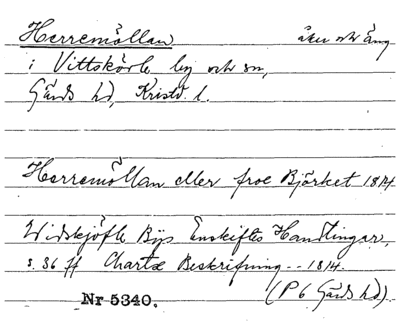 Herremöllan åker och äng
i Vittskövle by och sn,
Gärds hd, Kristi. l.
Herremöllan eller froe Björket 1814
Widskjöfle Bÿs Enskiftes Handlingar,
s. 36 ff Chartæ Beskrifning -- 1814.
(P 6 Gärds hd)
Nr 5340.